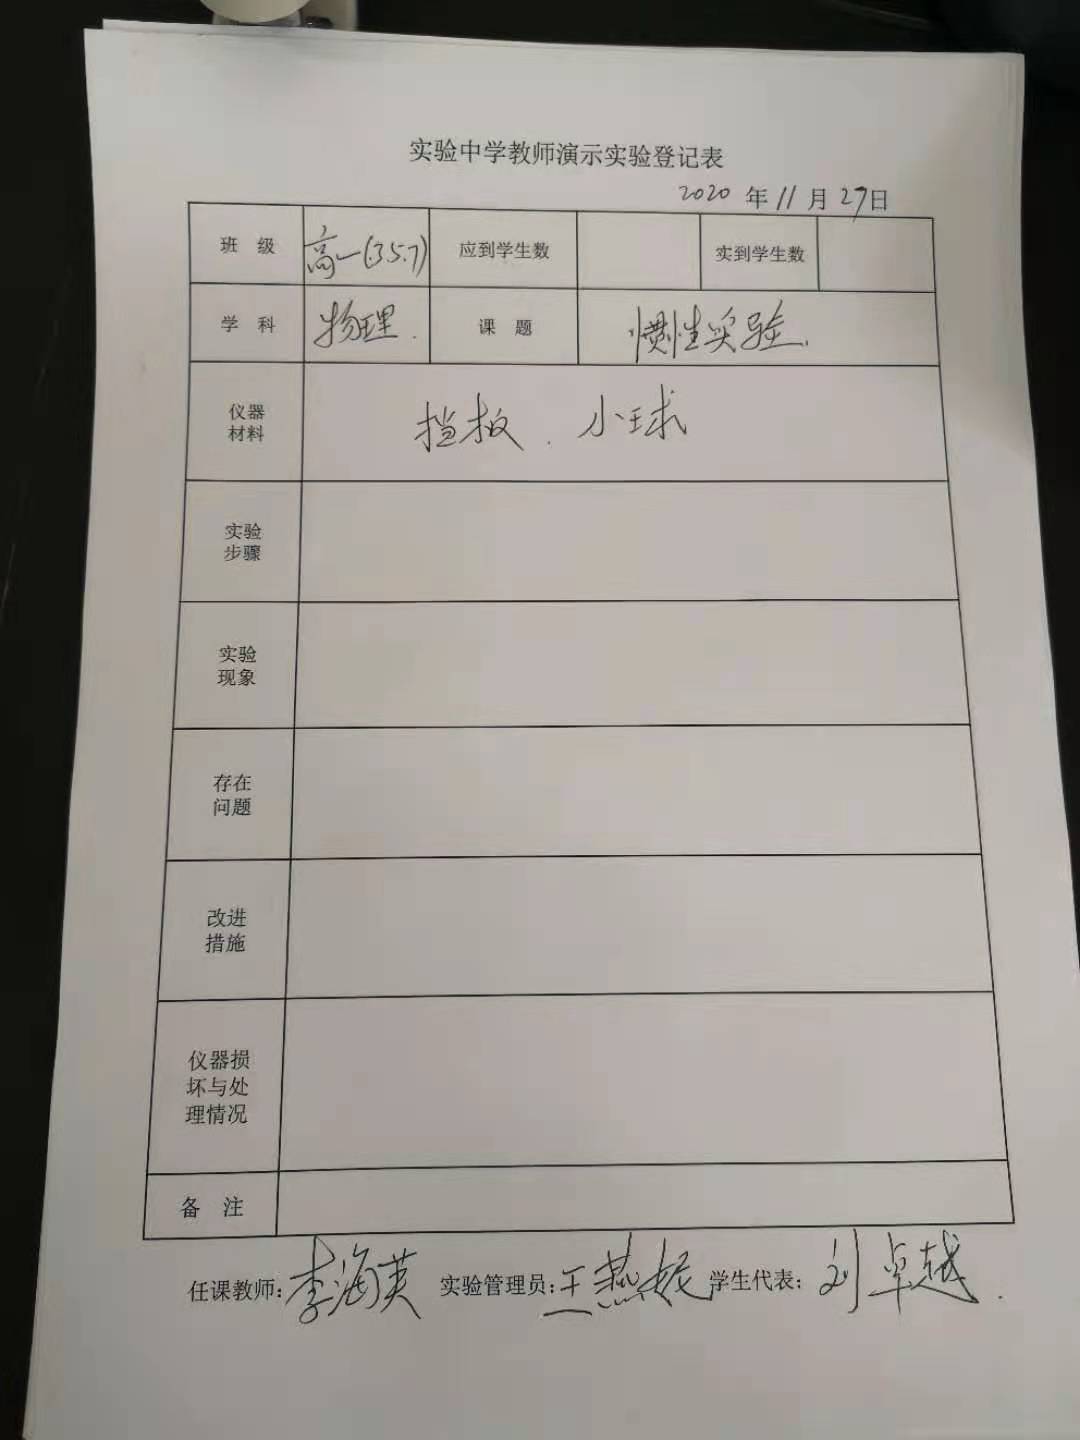 实验中学教师演示实验登记表
2020 年 11 月 27日
班 级 高一(35.7) 应到学生数 实到学生数
学 科 物理. 课 题 惯性实验.
仪器
材料
挡板.小球
实验
步骤
实验
现象
存在
问题
改进
措施
仪器损
坏与处
理情况
备 注
任课教师:李海英 实验管理员:王燕妮 学生代表:刘卓越.